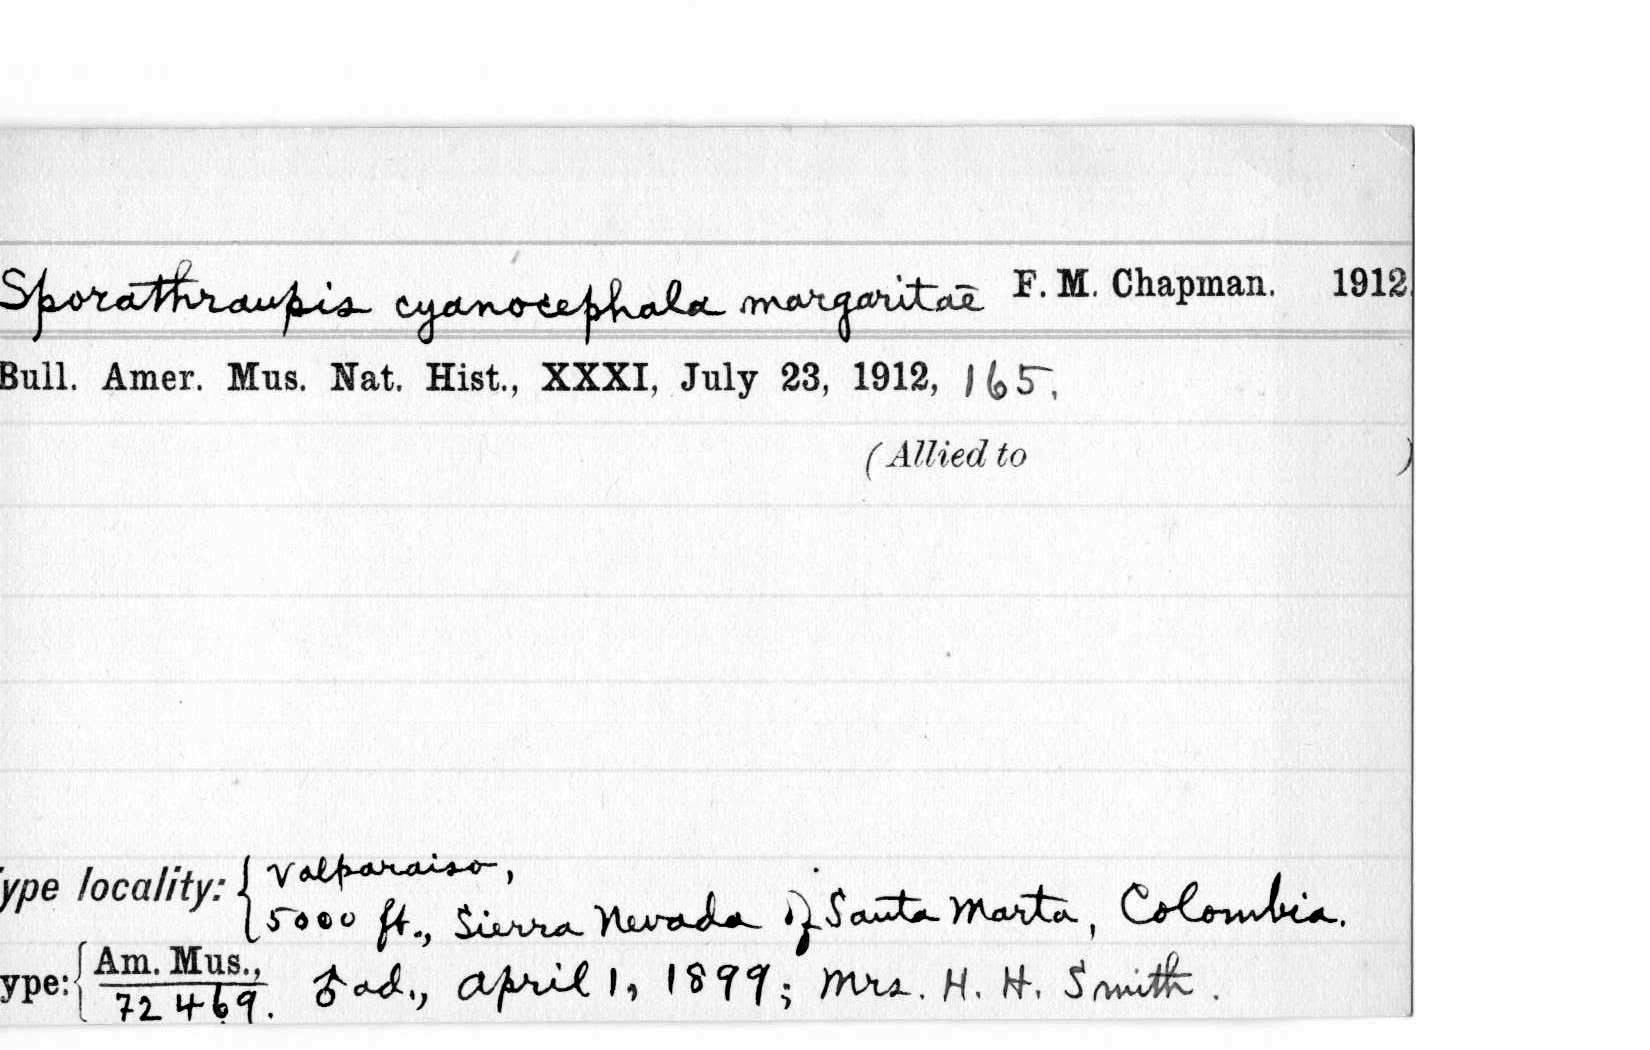 Sporathraupis cyanocephala margaritae F. M. Chapman. 1912.
Bull. Amer. Mus. Nat. Hist., XXXI, July 23, 1912, 165.
(Allied to )
ype locality: { Valparaiso,
5000 ft., Sierra Nevada of Santa Marta, Colombia.
ype: { Am. Mus.,
72469. ♂ ad., April 1, 1899; Mrs. H. H. Smith.